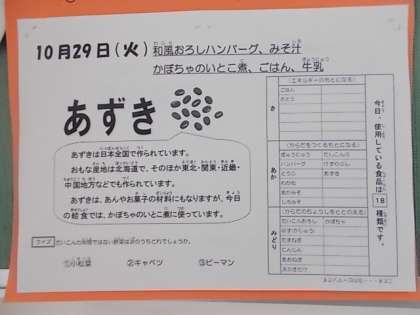 10月29日(火) 和風おろしハンバーグ、みそ汁
かぼちゃのいとこ煮、ごはん、牛乳
あずき
あずきは日本全国で作られています。
おもな産地は北海道で、そのほか東北・関東・近畿・
中国地方などでも作られています。
あずきは、あんやお菓子の材料にもなりますが、今日
の給食では、かぼちゃのいとこ煮に使っています。
クイズ だいこんの仲間ではない野菜は次のうちどれでしょうか。
①小松菜 ②キャベツ ③ピーマン
今日、使用している食品は18種類です。
(エネルギーのもとになる)
き
ごはん
さとう
(からだをつくるもとになる)
あか
ぎゅうにゅう
ハンバーグ
とうふ
あずき
わかめ
みそ
(からだのちょうしをととのえる)
みどり
かぼちゃ
たまねぎ
にんじん